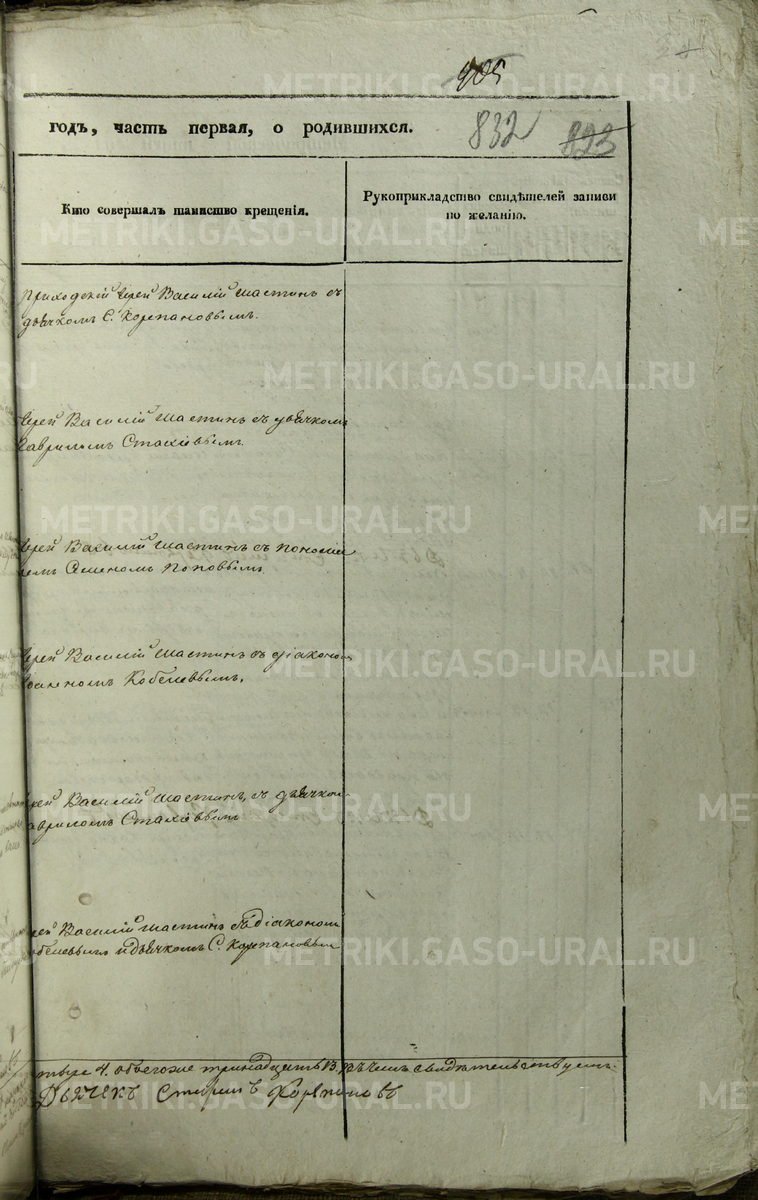 905
годъ, часть первая, о родившихся.
832 823
Кто совершалъ таинство крещенія.
Рукоприкладство свидѣтелей записи
по желанію.
Приходскій Іерей Василій Шастинъ съ
дьячкомъ С. Корепановымъ.
Іерей Василій Шастинъ съ дьячкомъ
Гавриломъ Стахіевымъ.
Іерей Василій Шастинъ съ пономаремъ
Поповымъ
Іерей Василій Шастинъ съ діакономъ
Кобелевымъ,
Іерей Василій Шастинъ, съ дьячкомъ
Гавриломъ Стахіевымъ
Іерей Василій Шастинъ съ діакономъ
Кобелевымъ и дьячкомъ С. Корепановымъ
4. обоего же тринадцать 13. въ чемъ свидѣтельствуемъ.
Дьячекъ Корепановъ
METRIKI.GASO-URAL.RU